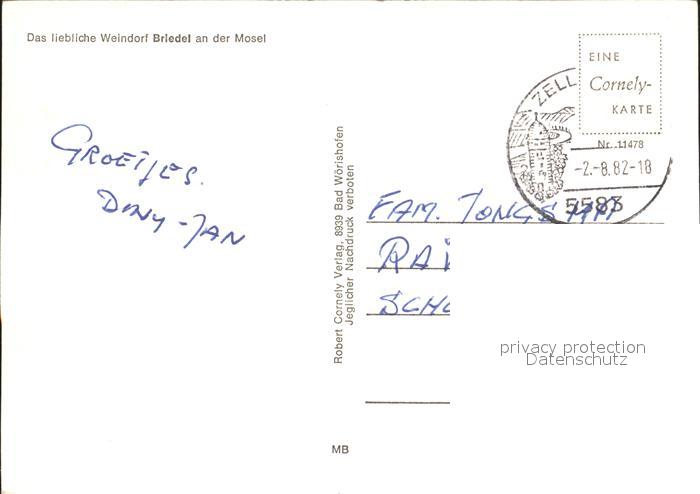 Das liebliche Weindorf Briedel an der Mosel
EINE
Cornely-
KARTE
Nr. 11478
ZELL
-2.-8.82-18
5583
GROETJES.
DINY-JAN
FAM. JONGSMA
RAI
SCHO
Robert Cornely Verlag, 8939 Bad Wörishofen
Jeglicher Nachdruck verboten
privacy protection
Datenschutz
MB